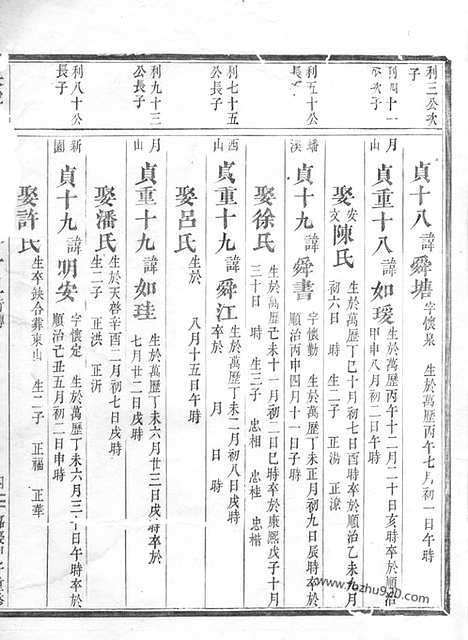 利三公次子
貞十八諱舜塘字懷泉 生於萬歷丙午七月初一日午時
利四十一公次子
月山
貞重十八諱如瑗生於萬歷丙午十二月二十日亥時卒於順治甲申八月初二日午時
娶文安陳氏生於萬歷丁巳十月初七日酉時卒於順治乙未九月初六日 時 生二子 正湯 正遼
利五十公長子
蟠溪
貞十九諱舜書字懷勤 生於萬歷丁未正月初九日辰時卒於順治丙申四月十一日子時
娶徐氏生於萬歷己未十一月初二日巳時卒於康熙戊子十月三十日 時 生三子 忠相 忠桂 忠楷
利七十五公長子
西山
貞重十九諱舜江生於萬歷丁未二月初八日戌時卒於 月 日 時
娶呂氏生於 八月十五日午時
利九十三公長子
月山
貞重十九諱如珪生於萬歷丁未六月廿三日戌時卒於七月廿二日戌時
娶潘氏生於天啓辛酉二月初七日戌時 生二子 正洪 正沂
利八十公長子
新園
貞十九諱明安字懷定 生於萬歷丁未六月三十日午時卒於順治己丑五月初二日申時
娶許氏生卒缺合葬東山 生二子 正福 正華
www.fozhu920.com